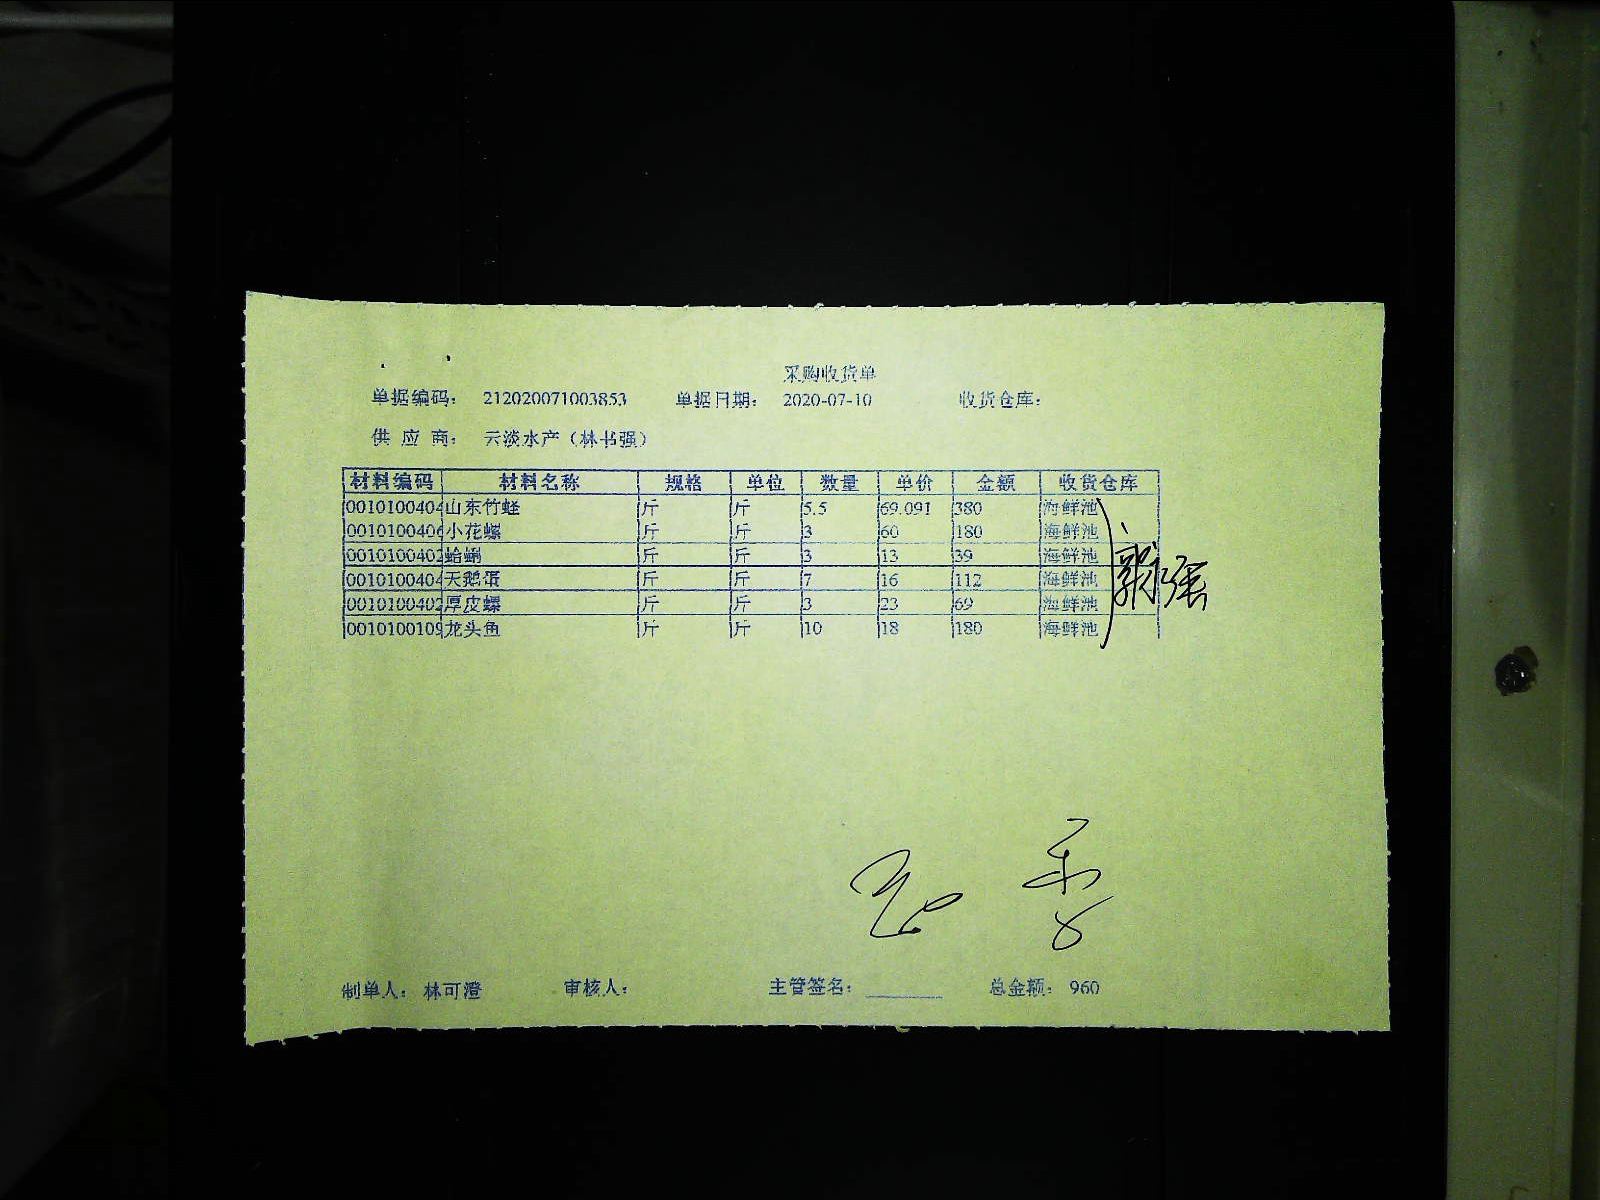 采购收货单
单据编码： 212020071003853 单据日期： 2020-07-10 收货仓库：
供 应 商： 云淡水产（林书强）
材料编码 材料名称 规格 单位 数量 单价 金额 收货仓库
0010100404 山东竹蛏 斤 斤 5.5 69.091 380 海鲜池
0010100406 小花螺 斤 斤 3 60 180 海鲜池
0010100402 蛤蜊 斤 斤 3 13 39 海鲜池
0010100404 天鹅蛋 斤 斤 7 16 112 海鲜池
0010100402 厚皮螺 斤 斤 3 23 69 海鲜池
0010100109 龙头鱼 斤 斤 10 18 180 海鲜池
制单人： 林可澄 审核人： 主管签名： 总金额： 960